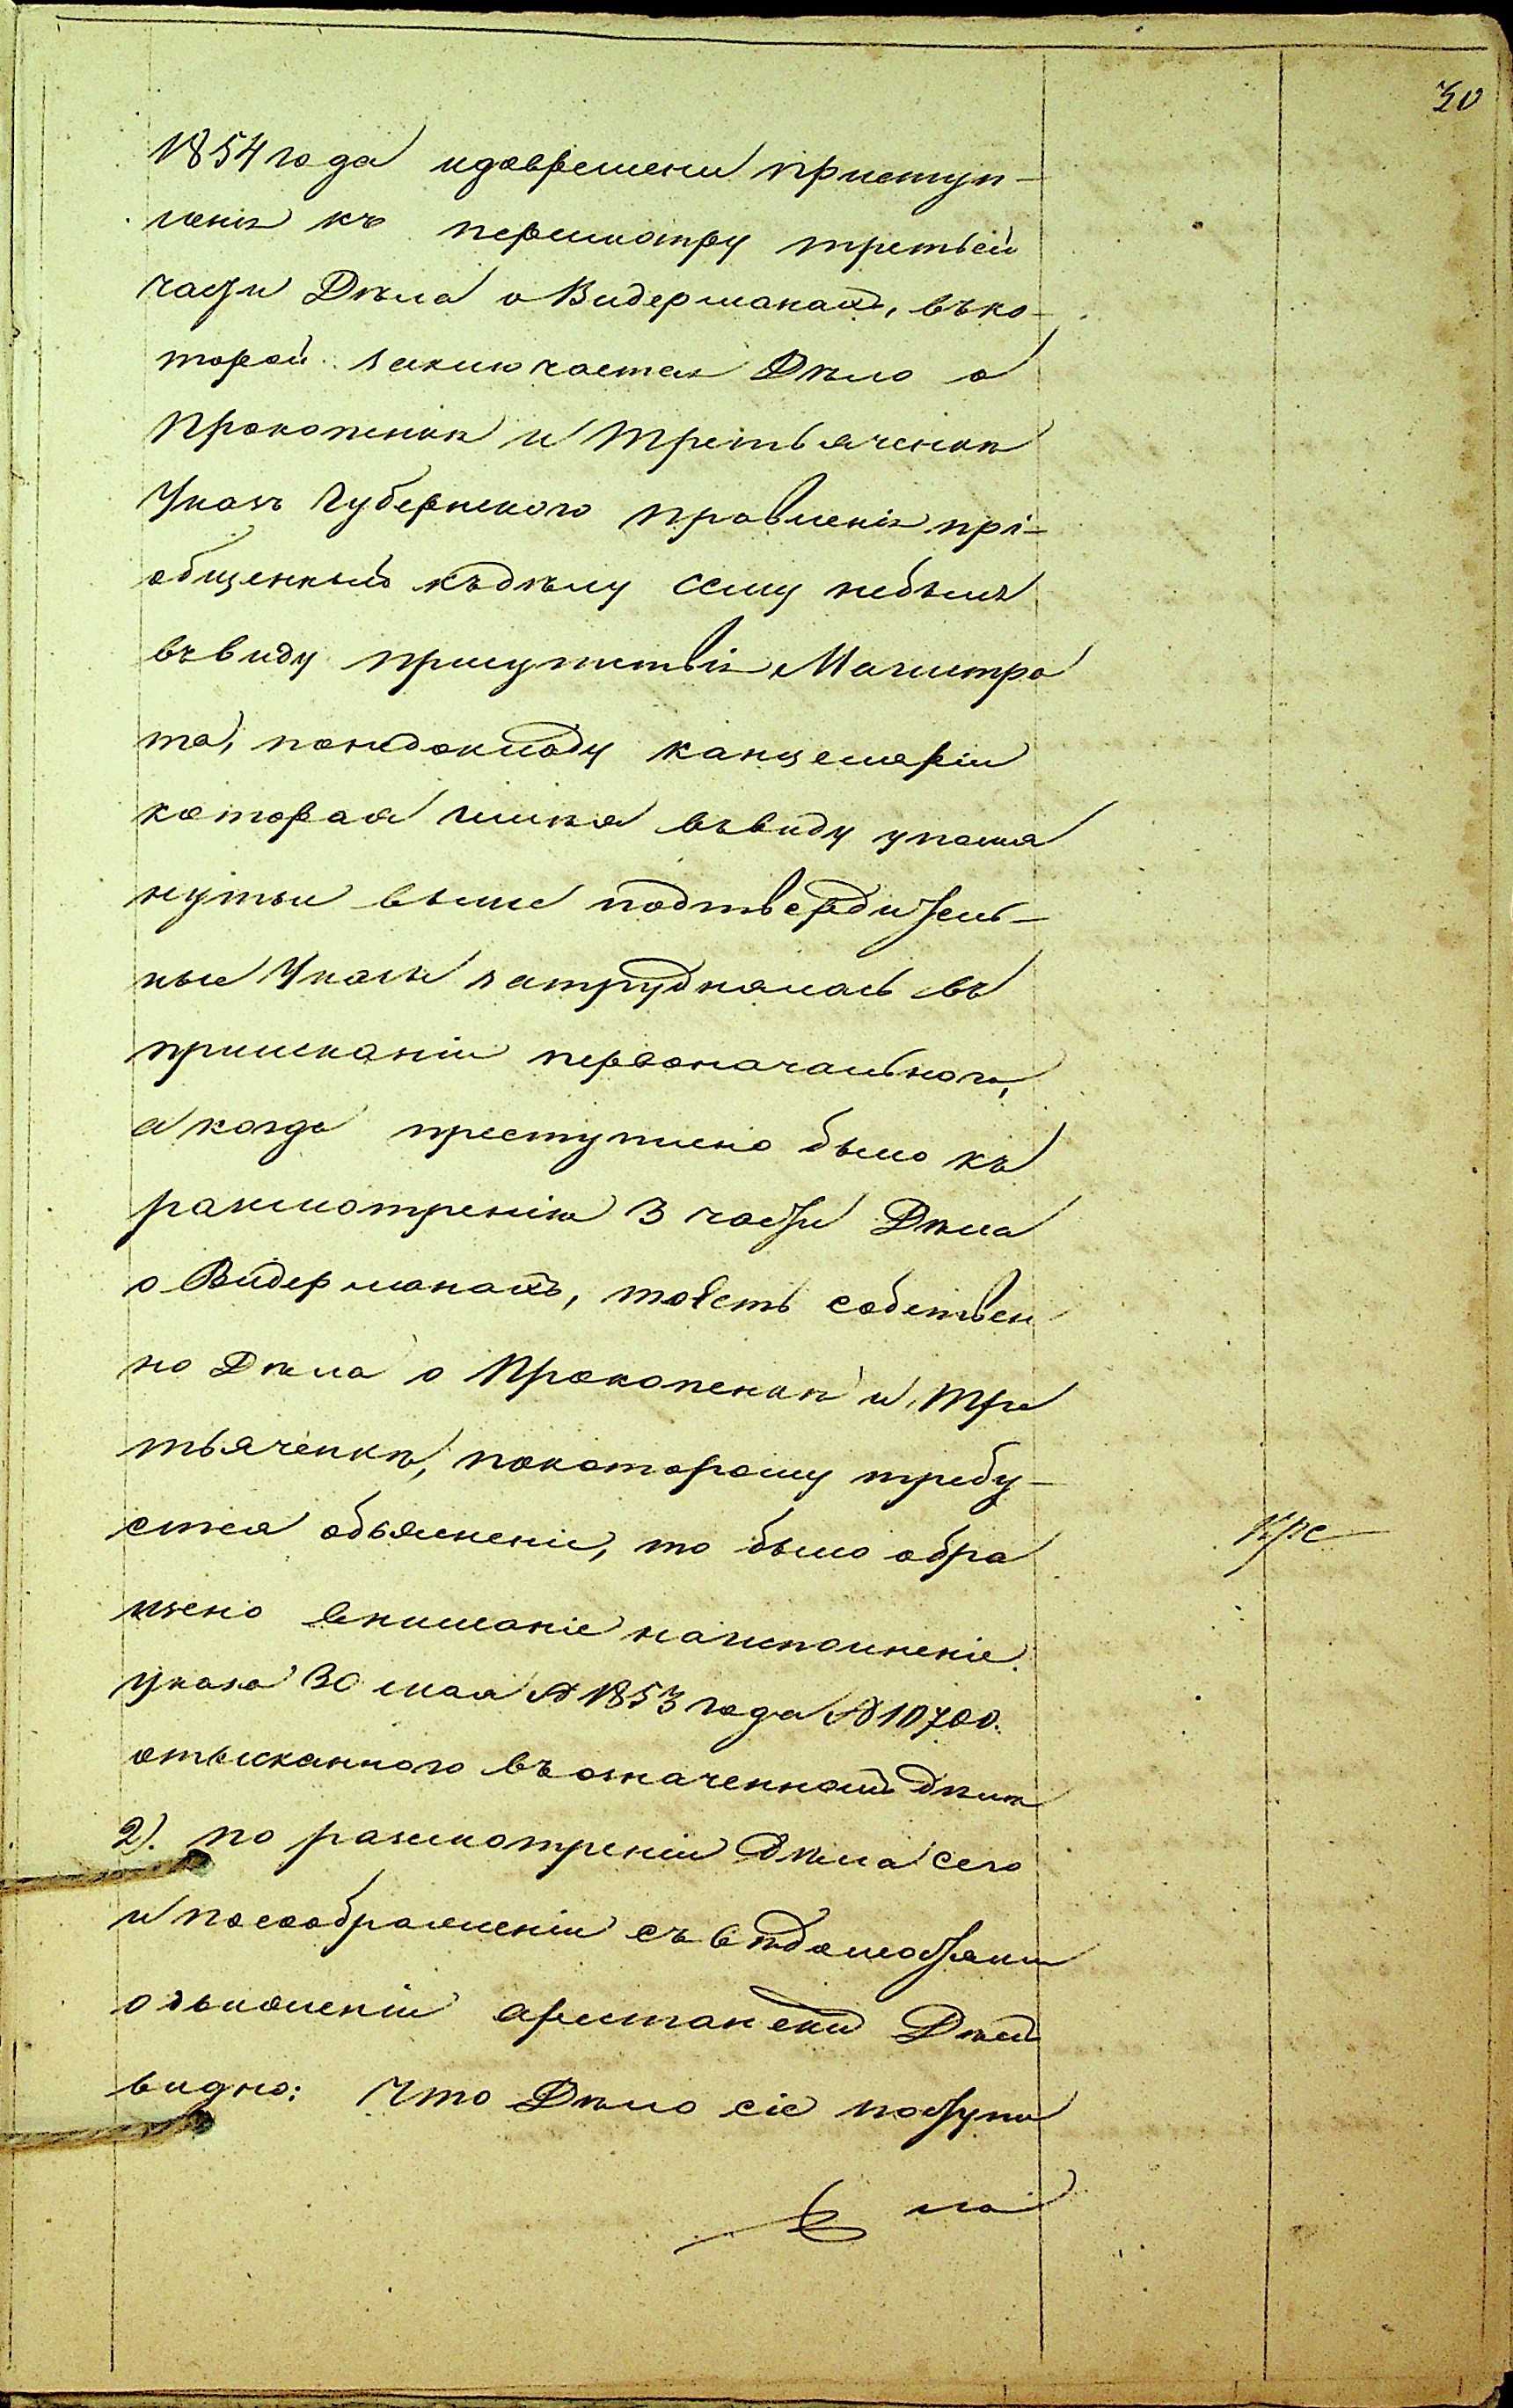 30
1854 года идовремени приступ-
ленія къ пересмотру третьей
части Дѣла о Видерманахъ, въко-
торой заключается Дѣло о
Прокопенкѣ и Третьяченкѣ
Указъ Губернскаго правленія прі-
общенный къдѣлу сему небылъ
въвиду присутствія Магистра
та, понедокладу канцеляріи
которая имѣя въвиду упомя
нутые выше подтвердитель-
ные Указы затруднялась въ
пріисканіи первоначальнаго,
а когда преступлено было къ
разсмотренію 3 части Дѣла
о Видерманахъ, тоесть собствен
но Дѣла о Прокопенкѣ и Тре
тьяченкѣ, покоторому требу-
ется объясненіе, то было обра
щено вниманіе наисполненіе
указа 30 мая 1853 года № 10700.
отысканного въозначенномъ дѣлѣ
2). по разсмотреніи Дѣла сего
и посоображеніи съ вѣдомостями
о арестантскихъ Дѣлъ
видно: Что Дѣло сіе поступи
ло